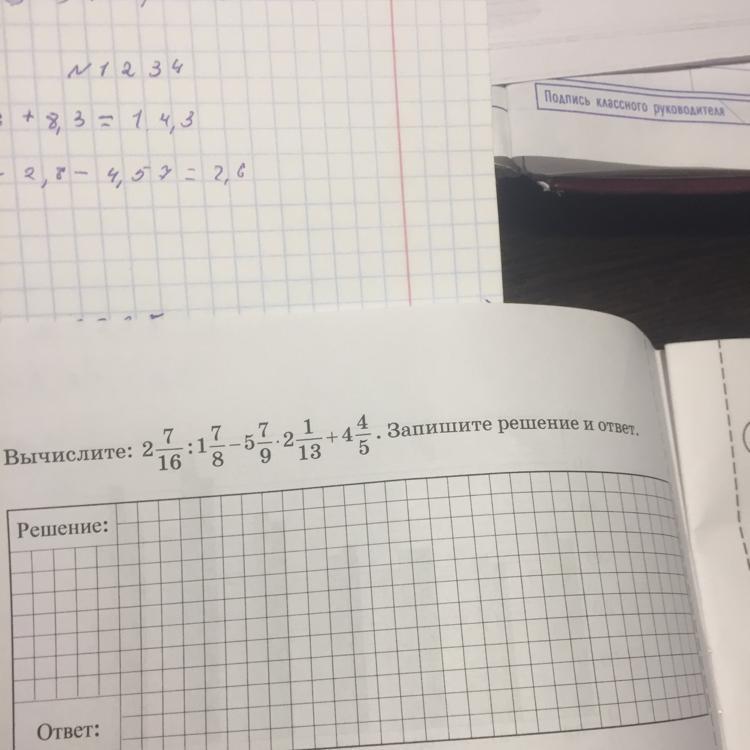 № 1 2 3 4
+ 8,3 = 1 4,3
- 2,8 - 4,57 = 2,6
Подпись классного руководителя
Вычислите: 2 7/16 : 1 7/8 − 5 7/9 · 2 1/13 + 4 4/5 . Запишите решение и ответ.
Решение:
Ответ: